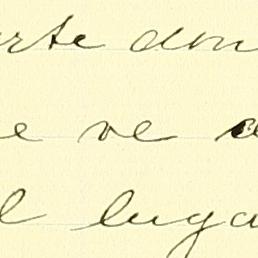 rte don
e ve a
l luga